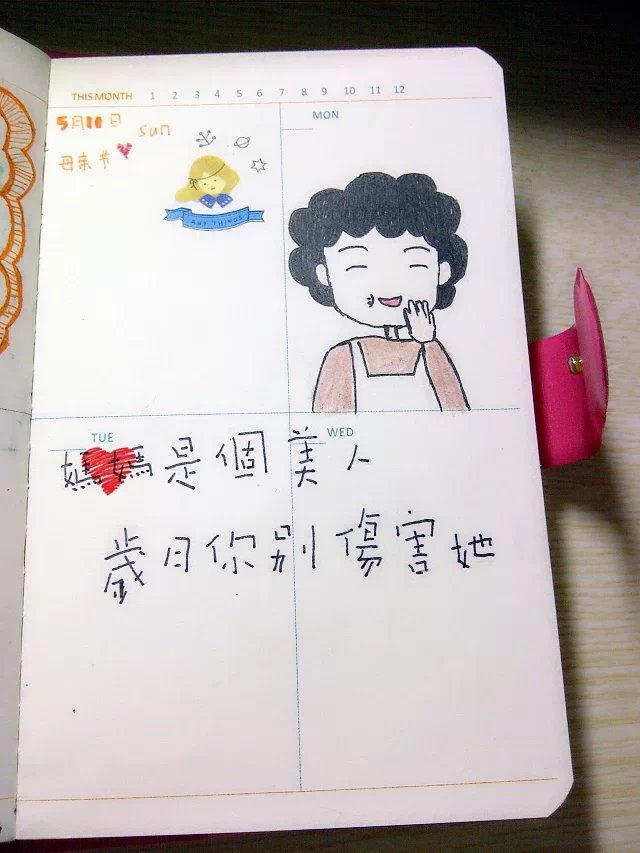 THIS MONTH 1 2 3 4 5 6 7 8 9 10 11 12
5月10日 sun
母亲节
ANY THINGS
MON
TUE
WED
媽媽是個美人
歲月你别傷害她